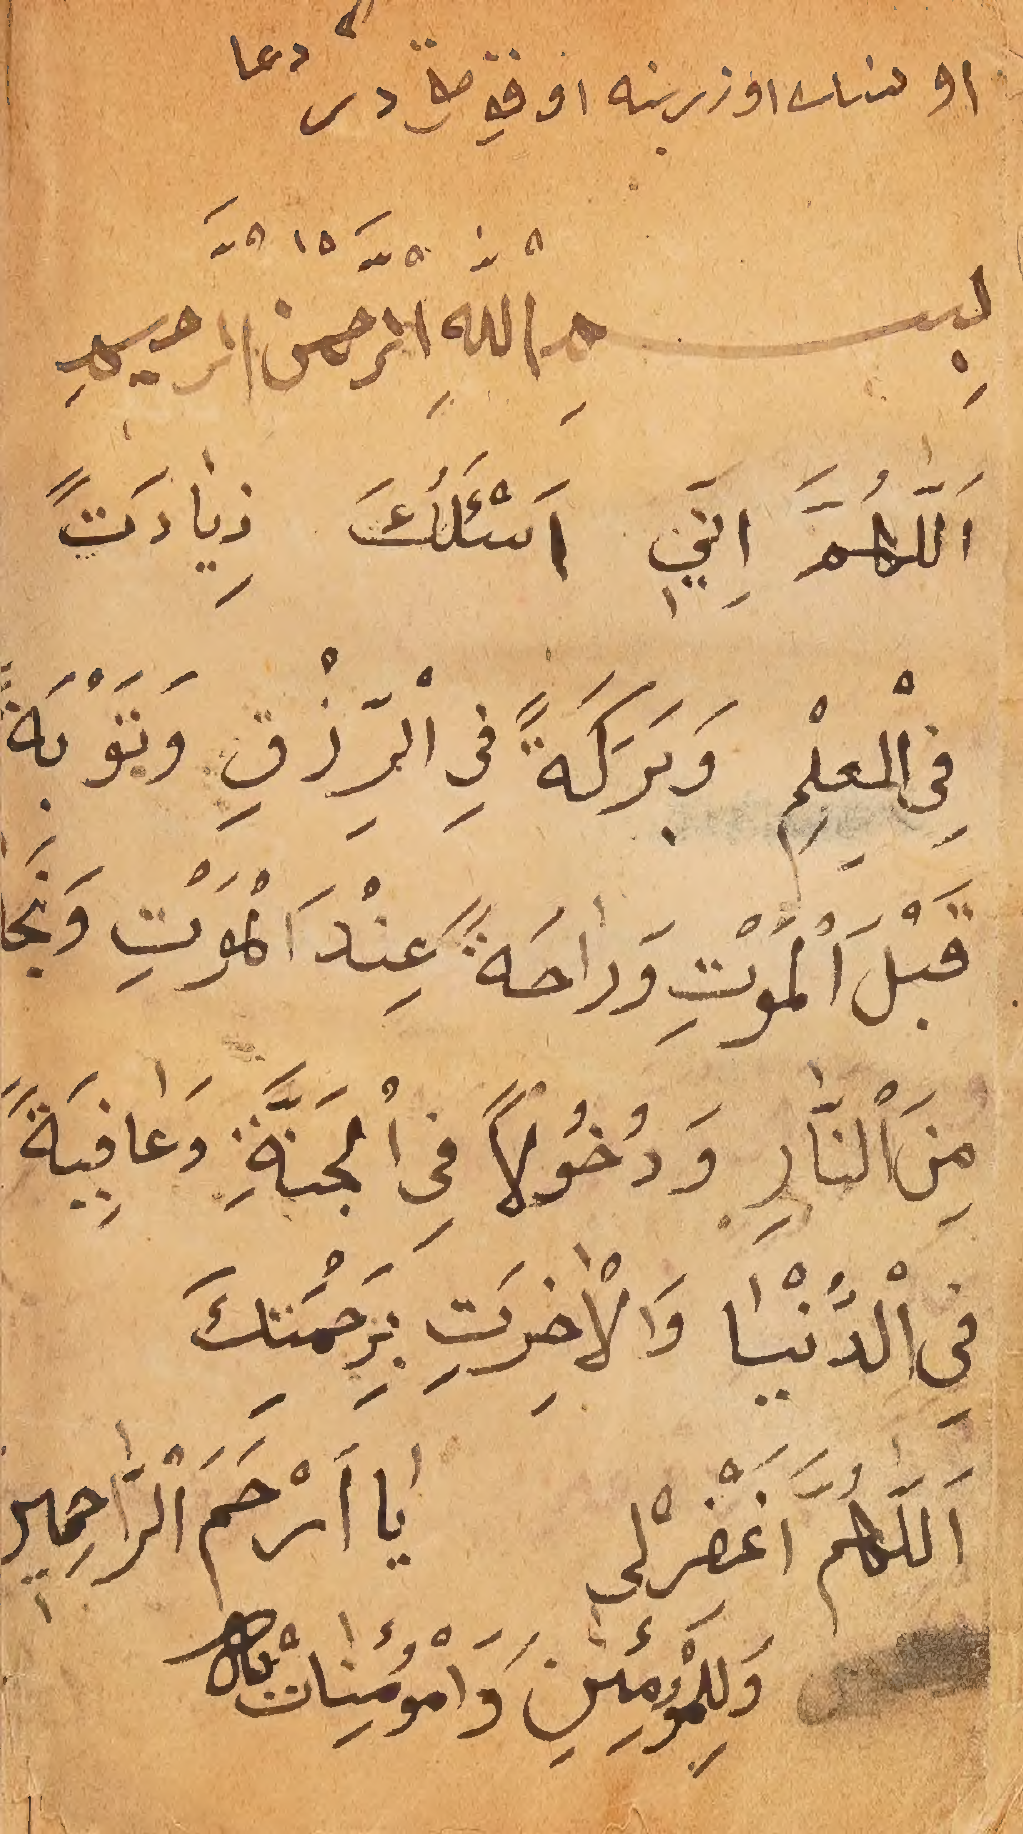 او اوزرينه دعا
بِسْمِ اللّٰهِ الرَّحْمٰنِ الرَّحِيمِ
اَللّٰهُمَّ اِنّٖي اَسْئَلُكَ زِيٰادَتً
فِى الْعِلْمِ وَبَرَكَةً فِى الْرِّزْقِ وَتَوْبَةً
قَبْلَ اَلْمَوْتِ وَرٰاحَةً عِنْدَ اَلْمَوْتِ وَنَجٰا
مِنَ اَلْنّٰارِ وَدُخُولاً فِى اْلجَنَّةِ وَعٰافِيَةً
فِى الْدُّنْيٰا وَالْاٰخِرَتِ بِرَحْمَتِكَ
اَللّٰهُمَّ اَغْفِرْلٖى يٰا اَرْحَمَ الْرّٰاحِمٖين
وَلِلْمُؤْمِنٖينَ وَاْمُؤْمِنٰاتْ